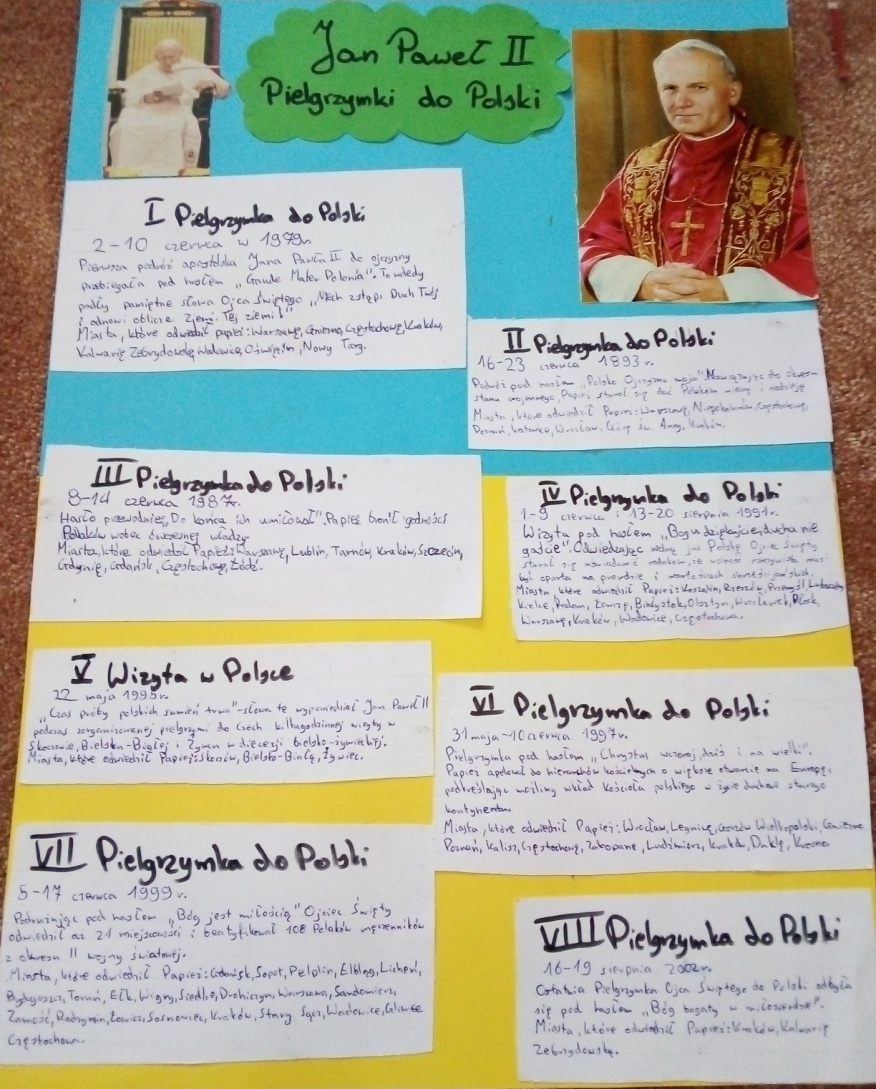 Jan Paweł II
Pielgrzymki do Polski
I Pielgrzymka do Polski
2-10 czerwca w 1979r.
Pierwsza podróż apostolska Jana Pawła II do ojczyzny
przebiegała pod hasłem „Gaude Mater Polonia". To wtedy
padły pamiętne słowa Ojca Świętego „Niech zstąpi Duch Twój
i odnowi oblicze Ziemi. Tej ziemi!"
Miasta, które odwiedził papież: Warszawę, Gniezno, Częstochowę, Kraków,
Kalwarię Zebrzydowską, Wadowice, Oświęcim, Nowy Targ.
II Pielgrzymka do Polski
16-23 czerwca 1893r.
Podróż pod hasłem „Polsko Ojczyzno moja". Nawiązując do okresu
stanu wojennego, Papież starał się dać Polakom wiarę i nadzieję
Miasta, które odwiedził Papież: Warszawę, Niepokalanów, Częstochowę,
Poznań, Katowice, Wrocław, Górę św. Anny, Kraków.
III Pielgrzymka do Polski
8-14 czerwca 1987r.
Hasło przewodnie „Do końca ich umiłował". Papież bronił godności
Polaków wobec ówczesnej władzy.
Miasta, które odwiedził Papież: Warszawę, Lublin, Tarnów, Kraków, Szczecin,
Gdynię, Gdańsk, Częstochowę, Łódź.
IV Pielgrzymka do Polski
1-9 czerwca i 13-20 sierpnia 1991r.
Wizyta pod hasłem „Bogu dziękujcie, ducha nie
gaście". Odwiedzając wolną już Polskę Ojciec Święty
starał się uświadomić rodakom, że wolność musi
być oparta na prawdzie i wartościach chrześcijańskich.
Miasta, które odwiedził Papież: Koszalin, Rzeszów, Przemyśl, Lubaczów,
Kielce, Radom, Łomżę, Białystok, Olsztyn, Włocławek, Płock,
Warszawę, Kraków, Wadowice, Częstochowa.
V Wizyta w Polsce
22 maja 1995r.
„Czas próby polskich sumień trwa" - słowa te wypowiedział Jan Paweł II
podczas zorganizowanej pielgrzymi do Czech kilkugodzinnej wizyty w
Skoczowie, Bielsku-Białej i Żywcu w diecezji bielsko-żywieckiej.
Miasta, które odwiedził Papież: Skoczów, Bielsko-Białą, Żywiec.
VI Pielgrzymka do Polski
31 maja-10 czerwca 1997r.
Pielgrzymka pod hasłem „Chrystus wczoraj, dziś i na wielki".
Papież apelował do hierarchów kościelnych o większe otwarcie na Europę,
podkreślając możliwy wkład Kościoła polskiego w życie duchowe starego
kontynentu.
Miasta, które odwiedził Papież: Wrocław, Legnicę, Gorzów Wielkopolski, Gniezno
Poznań, Kalisz, Częstochowę, Zakopane, Ludźmierz, Kraków, Duklę, Krosno
VII Pielgrzymka do Polski
5-17 czerwca 1999r.
Podróżując pod hasłem „Bóg jest miłością" Ojciec Święty
odwiedził aż 21 miejscowości i beatyfikował 108 Polaków męczenników
z okresu II wojny światowej.
Miasta, które odwiedził Papież: Gdańsk, Sopot, Pelplin, Elbląg, Licheń,
Bydgoszcz, Toruń, Ełk, Wigry, Siedlce, Drohiczyn, Warszawa, Sandomierz,
Zamość, Radzymin, Łowicz, Sosnowiec, Kraków, Stary Sącz, Wadowice, Gliwice
Częstochowa.
VIII Pielgrzymka do Polski
16-19 sierpnia 2002r.
Ostatnia Pielgrzymka Ojca Świętego do Polski odbyła
się pod hasłem „Bóg bogaty w miłosierdzie".
Miasta, które odwiedził Papież: Kraków, Kalwarię
Zebrzydowską.